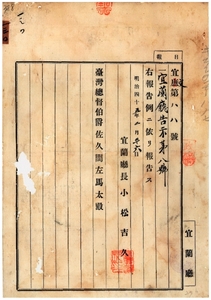 報告
宜庶第八八號
一宜蘭廳告示第八號
右報告例ニ依リ報告ス
明治四十五年一月廿六日
宜蘭廳長小松吉久
臺灣總督伯爵佐久間左馬太殿
宜蘭廳